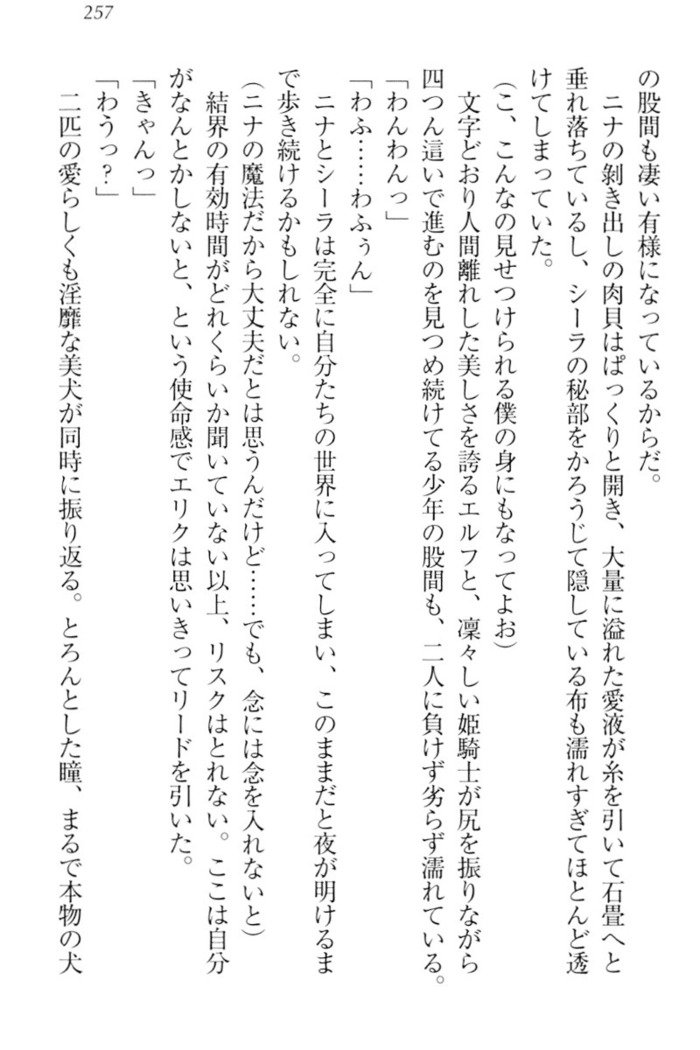 257
の股間も凄い有様になっているからだ。
ニナの剝き出しの肉貝はぱっくりと開き、大量に溢れた愛液が糸を引いて石畳へと
垂れ落ちているし、シーラの秘部をかろうじて隠している布も濡れすぎてほとんど透
けてしまっていた。
(こ、こんなの見せつけられる僕の身にもなってよお)
文字どおり人間離れした美しさを誇るエルフと、凜々しい姫騎士が尻を振りながら
四つん這いで進むのを見つめ続けてる少年の股間も、二人に負けず劣らず濡れている。
「わんわんっ」
「わふ……わふぅん」
ニナとシーラは完全に自分たちの世界に入ってしまい、このままだと夜が明けるま
で歩き続けるかもしれない。
(ニナの魔法だから大丈夫だとは思うんだけど……でも、念には念を入れないと)
結界の有効時間がどれくらいか聞いていない以上、リスクはとれない。ここは自分
がなんとかしないと、という使命感でエリクは思いきってリードを引いた。
「きゃんっ」
「わうっ?」
二匹の愛らしくも淫靡な美犬が同時に振り返る。とろんとした瞳、まるで本物の犬